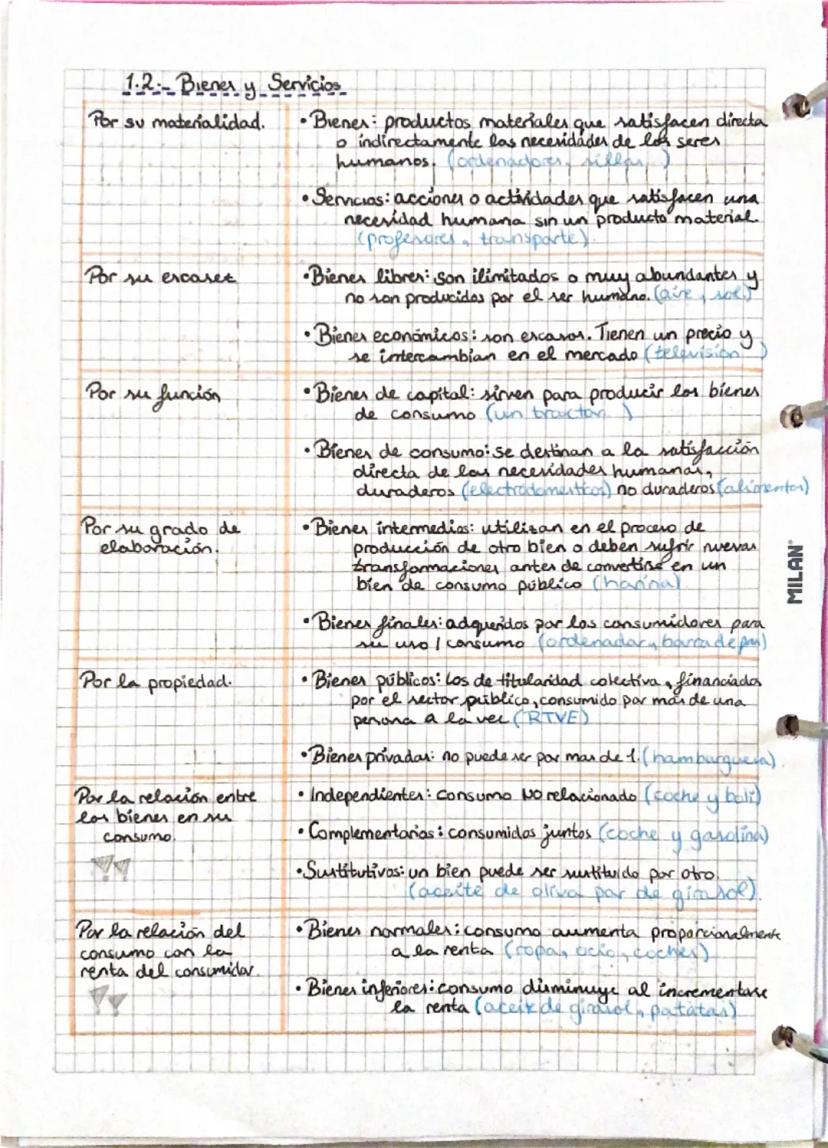 1.2.- Bienes y Servicios
Por su materialidad.
• Bienes: productos materiales que satisfacen directa
o indirectamente las necesidades de los seres
humanos. (ordenadores, sillas)
• Servicios: acciones o actividades que satisfacen una
necesidad humana sin un producto material.
(profesores, transporte).
Por su escasez
• Bienes libres: son ilimitados o muy abundantes y
no son producidos por el ser humano. (aire, sol)
• Bienes económicos: son escasos. Tienen un precio y
se intercambian en el mercado (televisión)
Por su función
• Bienes de capital: sirven para producir los bienes
de consumo (un tractor)
• Bienes de consumo: se destinan a la satisfacción
directa de las necesidades humanas,
duraderos (electrodomésticos) no duraderos (alimentos)
Por su grado de
elaboración.
• Bienes intermedios: utilizan en el proceso de
producción de otro bien o deben sufrir nuevas
transformaciones antes de convertirse en un
bien de consumo público (harina)
• Bienes finales: adqueridos por los consumidores para
su uso / consumo (ordenador, barra de pan)
Por la propiedad.
• Bienes públicos: los de titularidad colectiva, financiados
por el sector público, consumido por más de una
persona a la vez (RTVE)
• Bienes privados: no puede ser por mas de 1. (hamburguesa).
Por la relación entre
los bienes en su
consumo.
• Independientes: consumo NO relacionado (coche y boli)
• Complementarios: consumidos juntos (coche y gasolina)
• Sustitutivos: un bien puede ser sustituido por otro.
(aceite de oliva por de girasol).
Por la relación del
consumo con la
renta del consumidor.
• Bienes normales: consumo aumenta proporcionalmente
a la renta (ropa, ocio, coches)
• Bienes inferiores: consumo disminuye al incrementarse
la renta (aceite de girasol, patatas)
MILAN